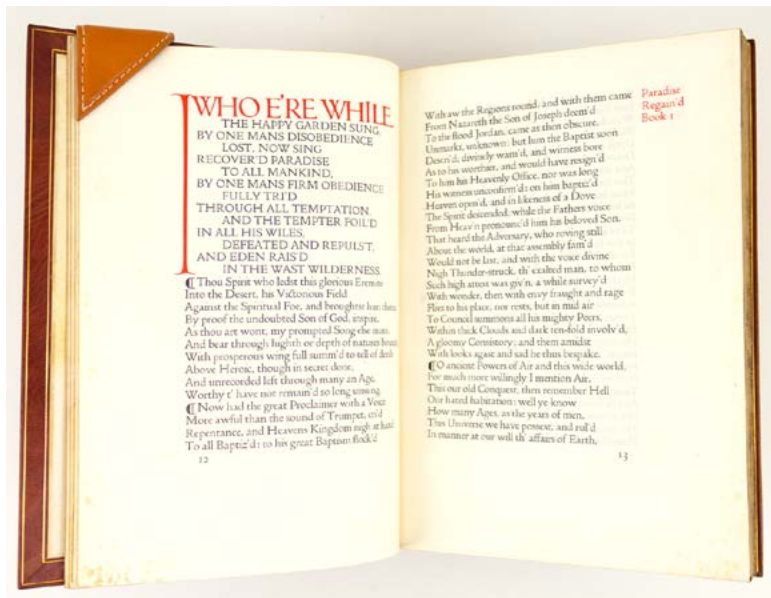 I WHO E'RE WHILE
THE HAPPY GARDEN SUNG,
BY ONE MANS DISOBEDIENCE
LOST, NOW SING
RECOVER'D PARADISE
TO ALL MANKIND,
BY ONE MANS FIRM OBEDIENCE
FULLY TRI'D
THROUGH ALL TEMPTATION,
AND THE TEMPTER FOIL'D
IN ALL HIS WILES,
DEFEATED AND REPULST,
AND EDEN RAIS'D
IN THE WAST WILDERNESS.
¶ Thou Spirit who ledst this glorious Eremite
Into the Desert, his Victorious Field
Against the Spiritual Foe, and broughtst him thence
By proof the undoubted Son of God, inspire,
As thou art wont, my prompted Song else mute,
And bear through highth or depth of natures bounds
With prosperous wing full summ'd to tell of deeds
Above Heroic, though in secret done,
And unrecorded left through many an Age,
Worthy t' have not remain'd so long unsung.
¶ Now had the great Proclaimer with a Voice
More awful than the sound of Trumpet, cri'd
Repentance, and Heavens Kingdom nigh at hand
To all Baptiz'd: to his great Baptism flock'd
12
With aw the Regions round, and with them came
From Nazareth the Son of Joseph deem'd
To the flood Jordan, came as then obscure,
Unmarkt, unknown; but him the Baptist soon
Descri'd, divinely warn'd, and witness bore
As to his worthier, and would have resign'd
To him his Heavenly Office, nor was long
His witness unconfirm'd: on him baptiz'd
Heaven open'd, and in likeness of a Dove
The Spirit descended, while the Fathers voice
From Heav'n pronounc'd him his beloved Son.
That heard the Adversary, who roving still
About the world, at that assembly fam'd
Would not be last, and with the voice divine
Nigh Thunder-struck, th' exalted man, to whom
Such high attest was giv'n, a while survey'd
With wonder, then with envy fraught and rage
Flies to his place, nor rests, but in mid air
To Council summons all his mighty Peers,
Within thick Clouds and dark ten-fold involv'd,
A gloomy Consistory; and them amidst
With looks agast and sad he thus bespake.
¶ O ancient Powers of Air and this wide world,
For much more willingly I mention Air,
This our old Conquest, then remember Hell
Our hated habitation; well ye know
How many Ages, as the years of men,
This Universe we have possest, and rul'd
In manner at our will th' affairs of Earth,
13
Paradise
Regain'd
Book 1